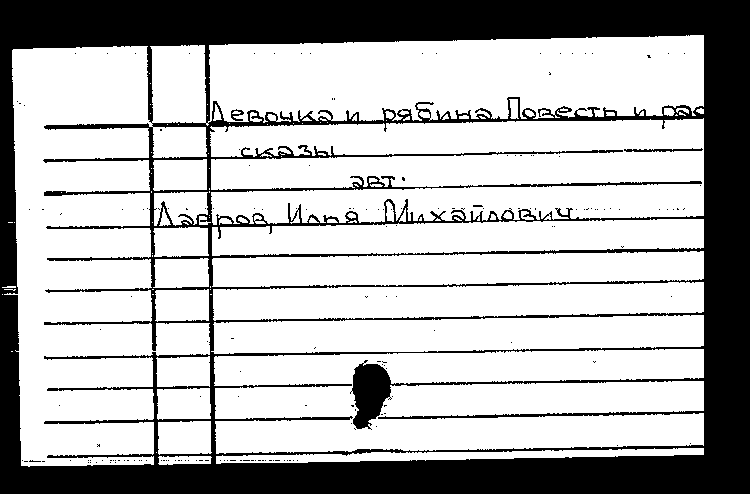 Девочка и рябина. Повесть и рас
сказы
авт.
Лавров, Илья Михайлович.